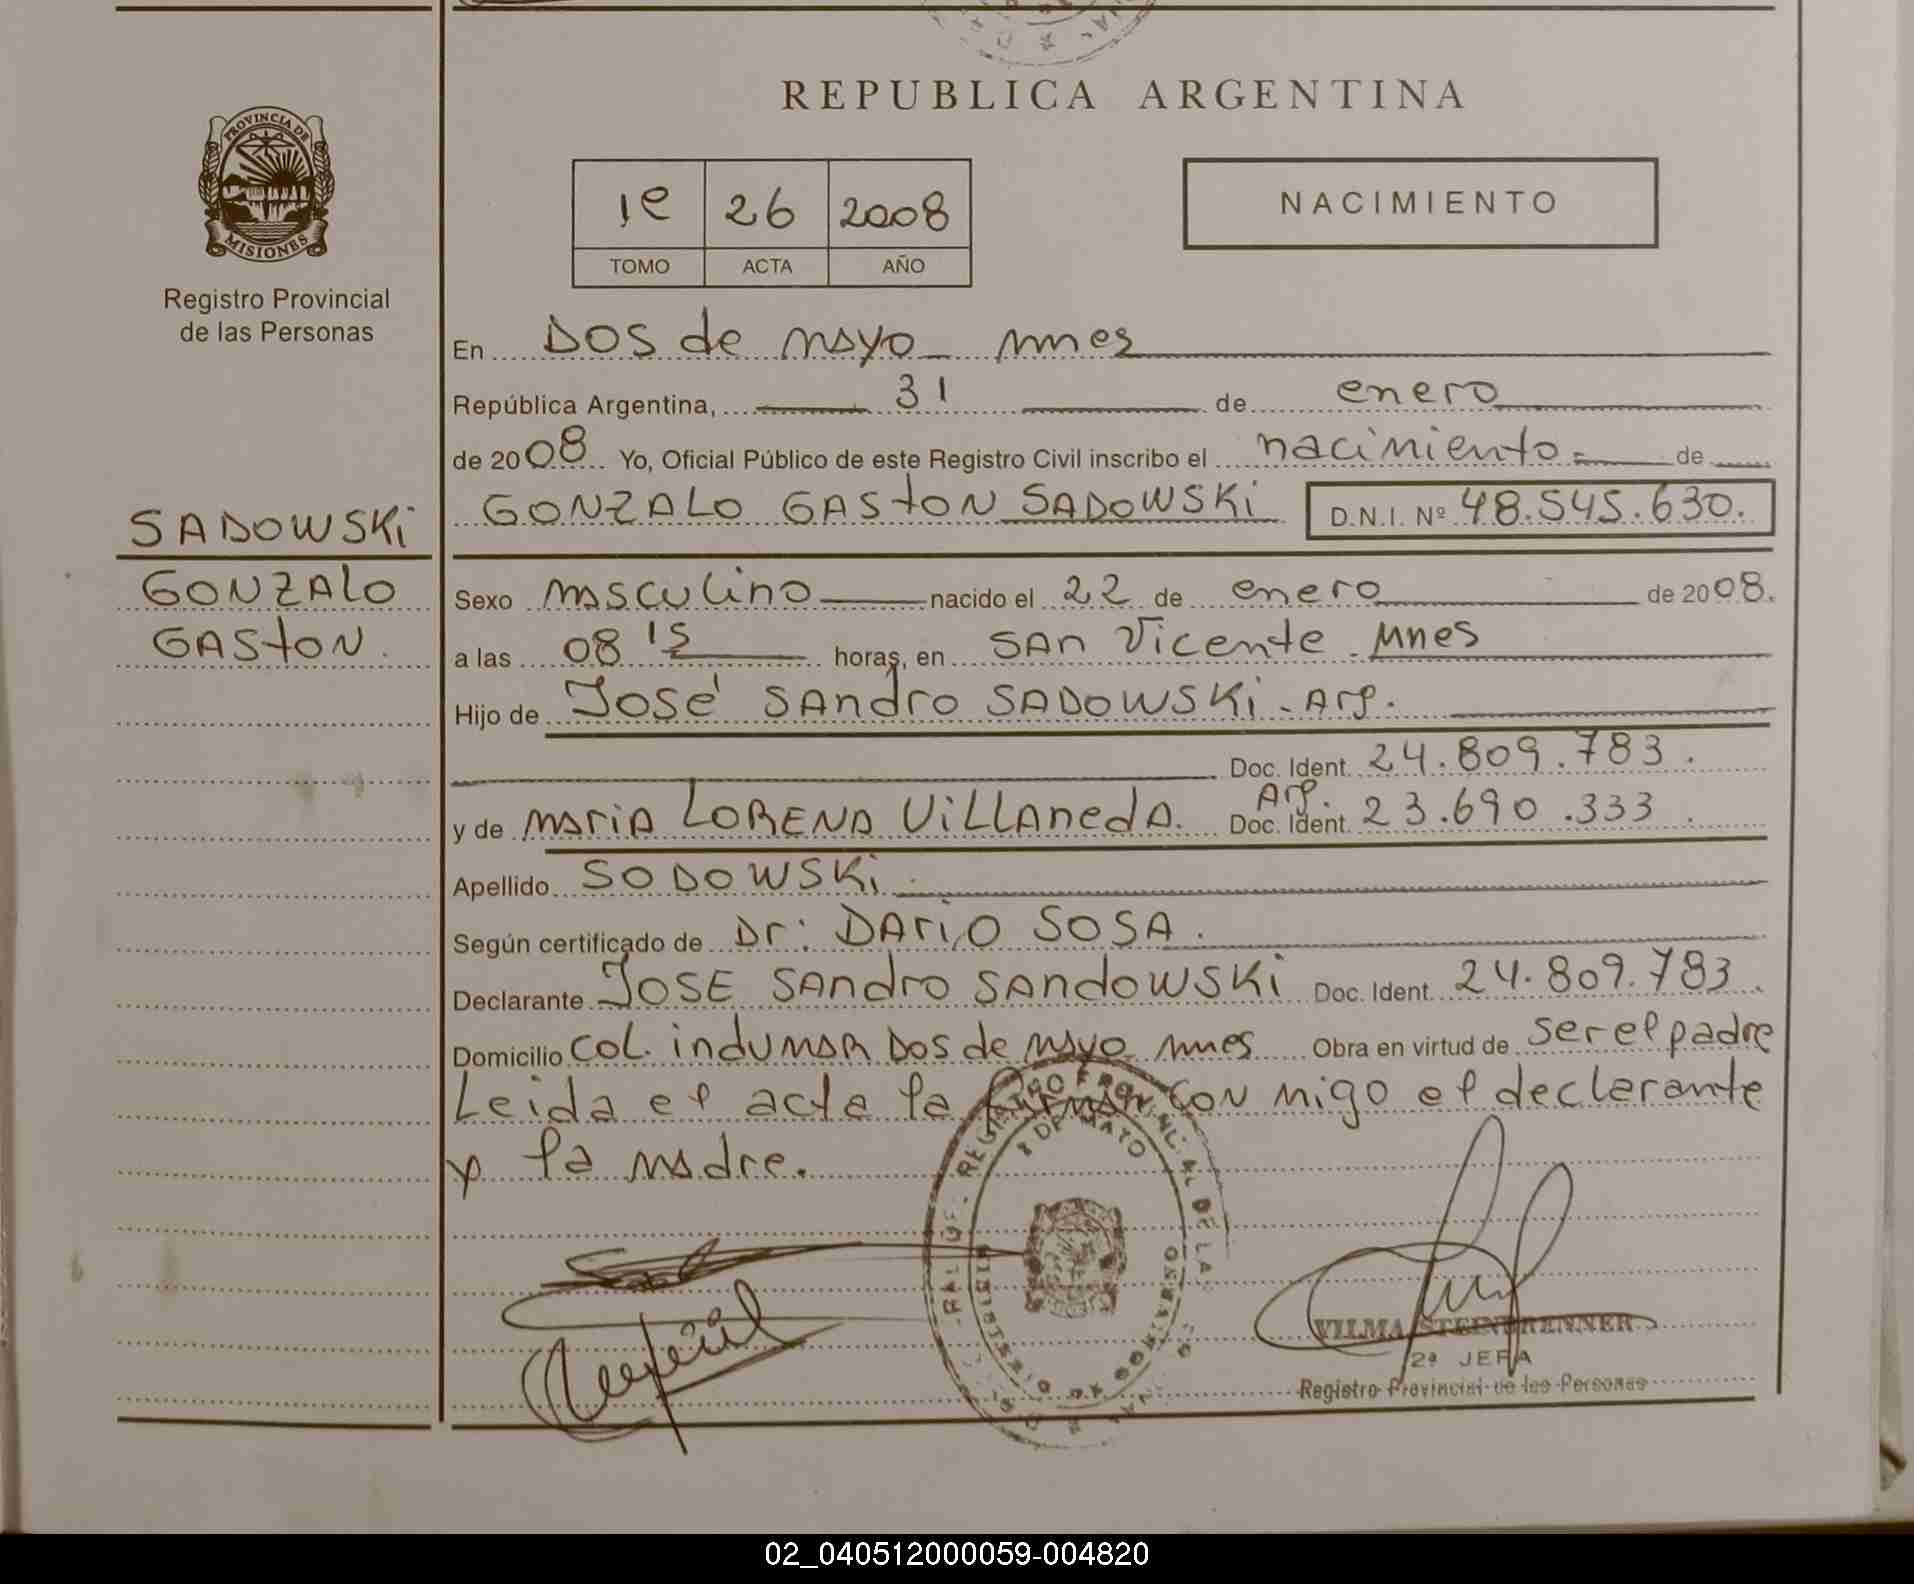 REPUBLICA ARGENTINA
PROVINCIA DE
MISIONES
Registro Provincial
de las Personas
1e 26 2008
TOMO ACTA AÑO
NACIMIENTO
En Dos de mayo mnes
República Argentina, 31 de enero
de 2008 Yo, Oficial Público de este Registro Civil inscribo el nacimiento de
GONZALO GASTON SADOWSKI D.N.I. Nº 48.545.630.
SADOWSKI
GONZALO
GASTON.
Sexo masculino nacido el 22 de enero de 2008.
a las 08 15 horas, en SAn Vicente Mnes
Hijo de José SAndro SADOWSKi - Arg.
Doc. Ident. 24.809.783.
y de MARIA LORENA ViLLAnedA. Arg. Doc. Ident. 23.690.333
Apellido SODOWSKi
Según certificado de Dr: DARiO SOSA.
Declarante JOSE SAndro SAndOWSKi Doc. Ident. 24.809.783
Domicilio COL. indUMAR Dos de mayo mnes Obra en virtud de ser el padre
Leida el acta la firman con migo el declarante
y la madre.
2 DE MAYO
VILMA STEINBRENNER
2ª JEFA
Registro Provincial de las Personas
02_040512000059-004820